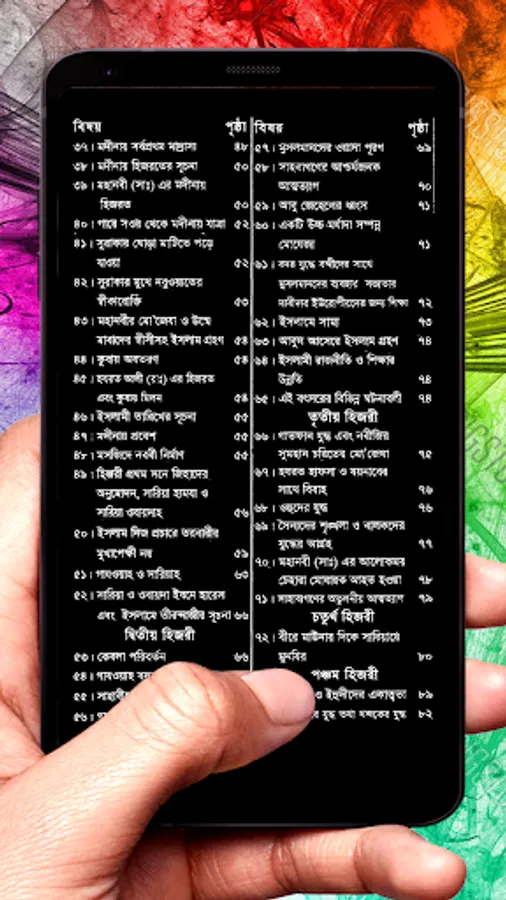 বিষয় পৃষ্ঠা
৩৭। মদীনায় সর্বপ্রথম মাদ্রাসা ৪৮
৩৮। মদীনায় হিজরতের সূচনা ৫০
৩৯। মহানবী (সাঃ) এর মদীনায়
হিজরত ৫০
৪০। গারে সওর থেকে মদীনায় যাত্রা ৫২
৪১। সুরাকার ঘোড়া মাটিতে গড়ে
যাওয়া ৫২
৪২। সুরাকার মুখে নবুওয়াতের
স্বীকারোক্তি ৫৩
৪৩। মহানবীর মো'জেযা ও উম্মে
মাবাদের স্বামীসহ ইসলাম গ্রহণ ৫৪
৪৪। কুবায় অবতরণ ৫৪
৪৫। হযরত আলী (রাঃ) এর হিজরত
এবং কুবায় মিলন ৫৪
৪৬। ইসলামী তারিখের সূচনা ৫৫
৪৭। মদীনায় প্রবেশ ৫৫
৪৮। মসজিদে নববী নির্মাণ ৫৫
৪৯। হিজরী প্রথম সনে জিহাদের
অনুমোদন, সারিয়া হামযা ও
সারিয়া ওবায়দাহ ৫৬
৫০। ইসলাম নিজ প্রচারে তরবারীর
মুখাপেক্ষী নয় ৫৯
৫১। গাযওয়াহ ও সারিয়াহ ৬৩
৫২। সারিয়া ও ওবায়দা ইবনে হারেস
এবং ইসলামে তীরন্দাজীর সূচনা ৬৬
দ্বিতীয় হিজরী
৫৩। কেবলা পরিবর্তন ৬৬
৫৪। গাযওয়াহ
৫৫। সাহাবী
৫৬।
বিষয় পৃষ্ঠা
৫৭। মুসলমানদের ওয়াদা পূরণ ৬৯
৫৮। সাহাবাগণের আশ্চর্যজনক
আত্মত্যাগ ৭০
৫৯। আবু জেহেলের ধ্বংস ৭১
৬০। একটি উচ্চ মর্যাদা সম্পন্ন
মোযেজা ৭১
৬১। বদর যুদ্ধে বন্দীদের সাথে
মুসলমানদের ব্যবহার সভ্যতার
দাবীদার ইউরোপীয়দের জন্য শিক্ষা ৭২
৬২। ইসলামে সাম্য ৭৩
৬৩। আবুল আসের ইসলাম গ্রহণ ৭৪
৬৪। ইসলামী রাজনীতি ও শিক্ষার
উন্নতি ৭৪
৬৫। এই বৎসরের বিভিন্ন ঘটনাবলী ৭৪
তৃতীয় হিজরী
৬৬। গাতফান যুদ্ধ এবং নবীজির
সুমহান চরিত্রের মো'জেযা ৭৫
৬৭। হযরত হাফসা ও যয়নাবের
সাথে বিবাহ ৭৬
৬৮। ওহুদের যুদ্ধ ৭৬
৬৯। সৈন্যদের শৃংখলা ও বালকদের
যুদ্ধের আগ্রহ ৭৭
৭০। মহানবী (সাঃ) এর আলোকময়
চেহারা মোবারক আহত হওয়া ৭৮
৭১। সাহাবাগণের অতুলনীয় আত্মত্যাগ ৭৯
চতুর্থ হিজরী
৭২। বীরে মাউনার দিকে সারিয়ায়ে
মুনযির ৮০
পঞ্চম হিজরী
ও ইহুদীদের একাত্মতা ৮১
যুদ্ধ তথা খন্দকের যুদ্ধ ৮২